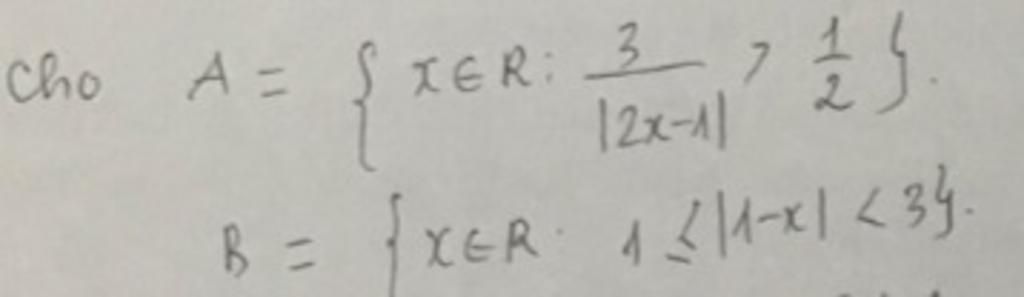 Cho A = { x ∈ R : 3/|2x-1| > 1/2 }.
B = { x ∈ R : 1 ≤ |1-x| < 3}.